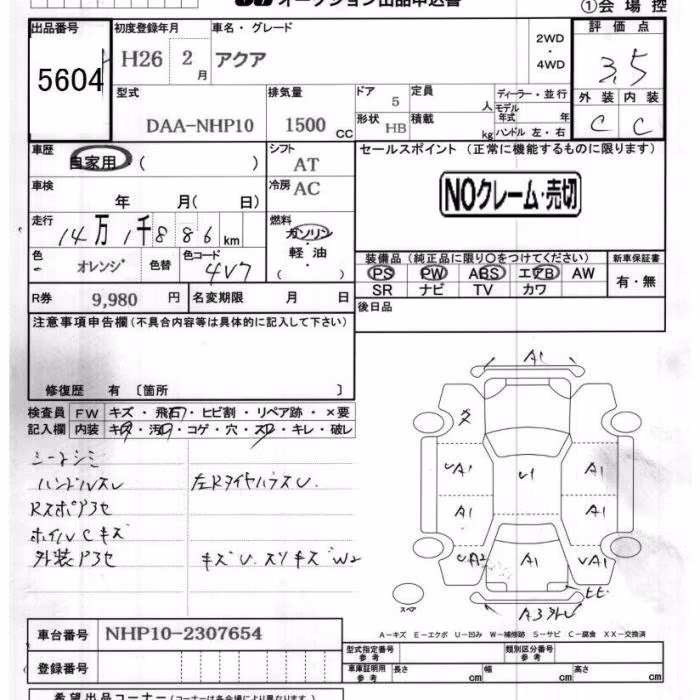 オークション出品申込書
①会 場 控
出品番号
5604
初度登録年月
H26 2 月
車名・グレード
アクア
2WD
・
4WD
評 価 点
3.5
外 装 内 装
C C
型式
DAA-NHP10
排気量
1500 CC
ドア 5
定員 人
形状 HB
積載 kg
ディーラー・並行
モデル年式 年
ハンドル 左・右
車歴
自家用・( )
シフト
AT
セールスポイント (正常に機能するものに限ります)
NOクレーム・売切
車検
年 月( 日)
冷房
AC
走行
14万1千886km
燃料
ガソリン
・
軽 油
( )
色
オレンジ
色替
色コード
4V7
装備品 (純正品に限り○をつけてください)
PS PW ABS エアB AW
SR ナビ TV カワ
新車保証書
有・無
R券
9,980 円
名変期限 月 日
後日品
注意事項申告欄(不具合内容等は具体的に記入して下さい)
修復歴 有 〔箇所 〕
検査員 FW キズ・飛石・ヒビ割・リペア跡・×要
記入欄 内装 キズ・汚れ・コゲ・穴・スレ・キレ・破レ
シートシミ
ハンドルスレ
Rスポアヨセ
ホイルCキズ
外装アヨセ
キズU.スリキズW2
A1
UA1
U1
A1
A1
A1
UA2
A1
UA1
スペア
A-キズ E-エクボ U-凹み W-補修跡 S-サビ C-腐食 XX-交換済
車台番号
NHP10-2307654
登録番号
型式指定番号
参 考
類別区分番号
参 考
車庫証明用
参 考
長さ cm
幅 cm
高さ cm
希望出品コーナー(コーナーは各会場により異なります)